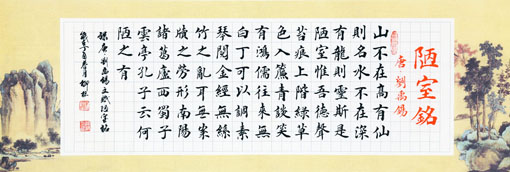 陋室銘
唐 劉禹錫
山不在高有仙
則名水不在深
有龍則靈斯是
陋室惟吾德馨
苔痕上階綠草
色入簾青談笑
有鴻儒往來無
白丁可以調素
琴閱金經無絲
竹之亂耳無案
牘之勞形南陽
諸葛廬西蜀子
雲亭孔子云何
陋之有
錄唐 劉禹錫文 陋室銘